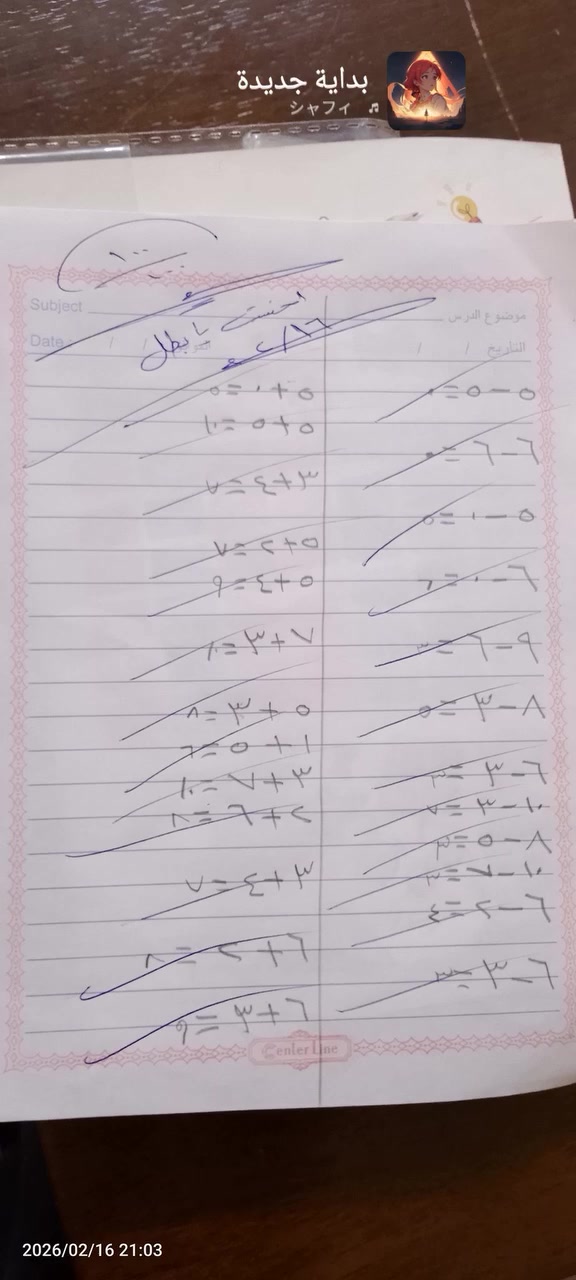 بداية جديدة
シャフィ
١٠٠
١٠٠
Subject
موضوع الدرس
احسنت يا بطل
١٦/٢
Date: / /
التاريخ / /
٥-٥=٠
٦-٦=٠
٥-٠=٥
٦-٠=٦
٩-٦=٣
٨-٣=٥
٦-٣=٣
١٠-٣=٧
٨-٥=٣
١٠-٧=٣
٦-٢=٤
٦-٣=٣
٥+٠=٥
٥+٥=١٠
٣+٤=٧
٥+٢=٧
٥+٤=٩
٧+٣=١٠
٥+٣=٨
١+٥=٦
٣+٧=١٠
٢+٦=٨
٣+٤=٧
٦+٢=٨
٦+٣=٩
Center Line
2026/02/16 21:03